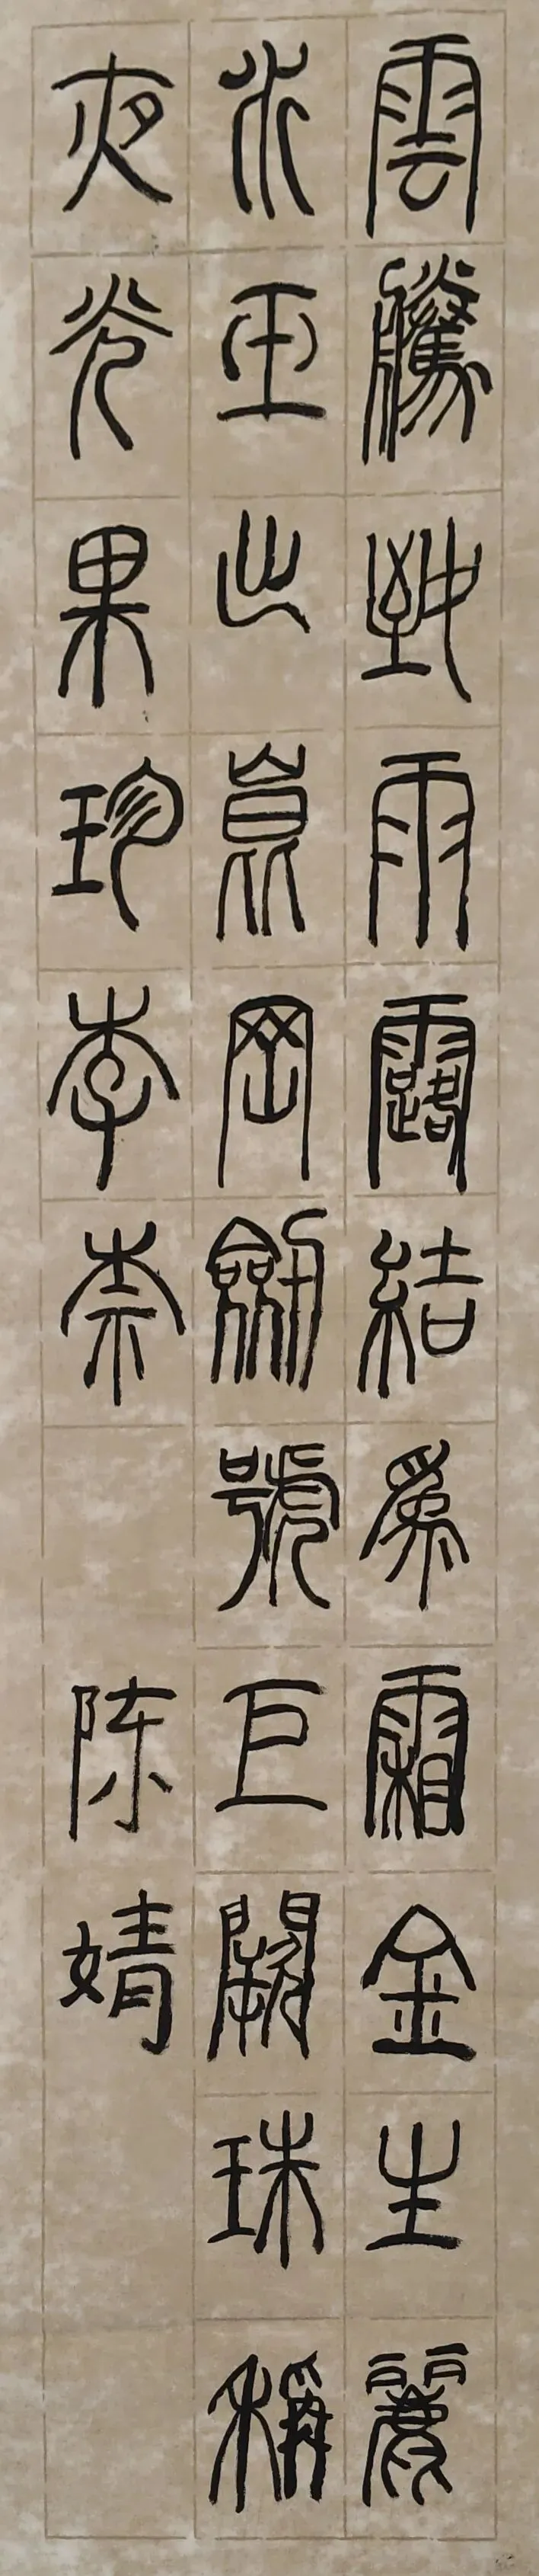 雲騰致雨露結為霜金生麗
水玉出崑岡劍號巨闕珠稱
夜光果珍李柰
陈婧